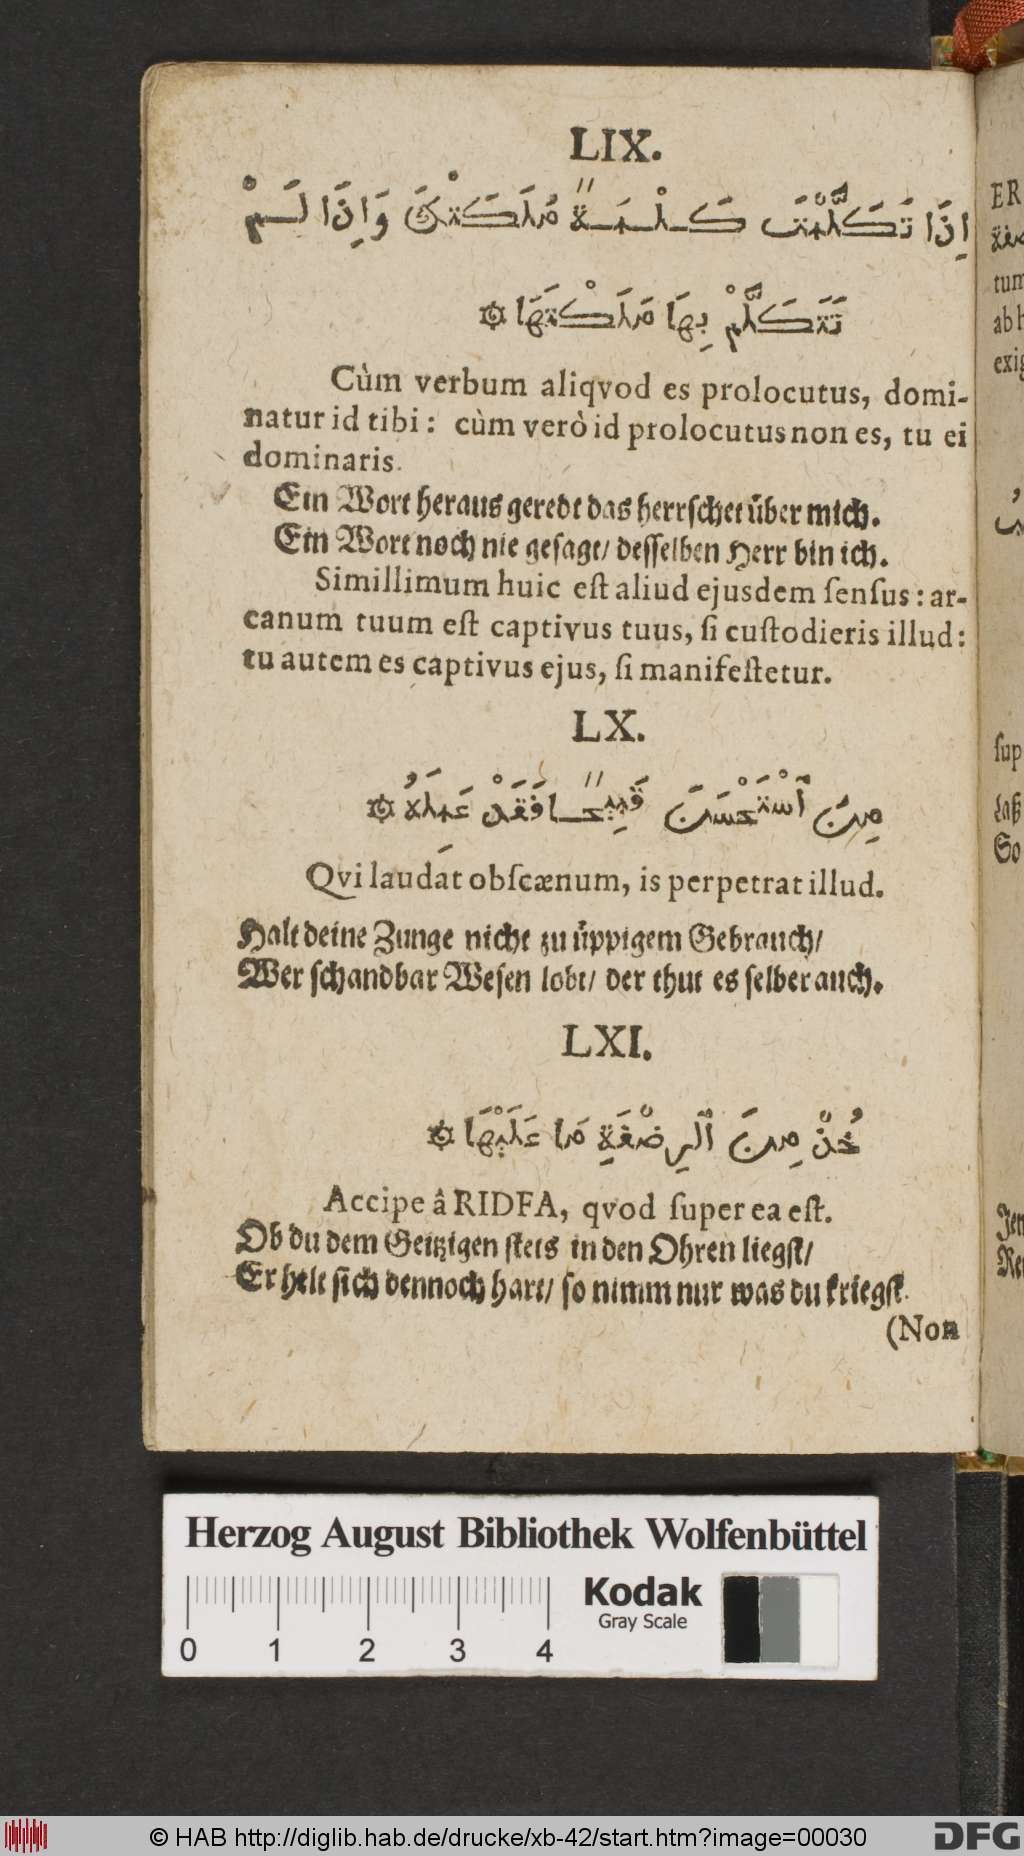 LIX.
اِذَا تَكَلَّمْتَ كَلْمَةً مَلَكَتْكَ وَاِذَا لَمْ
تَتَكَلَّمْ بِهَا مَلَكْتَهَا ۞
Cùm verbum aliqvod es prolocutus, domi-
natur id tibi: cùm verò id prolocutus non es, tu ei
dominaris.
Ein Wort heraus geredt das herrſchet über mich.
Ein Wort noch nie geſagt/ deſſelben Herr bin ich.
Simillimum huic eſt aliud ejusdem ſenſus: ar-
canum tuum eſt captivus tuus, ſi cuſtodieris illud:
tu autem es captivus ejus, ſi manifeſtetur.
LX.
مِنَ ٱسْتَحْسَنَ قَبِيحًا فَقَدْ عَمِلَهُ ۞
Qvi laudat obſcænum, is perpetrat illud.
Halt deine Zunge nicht zu üppigem Gebrauch/
Wer ſchandbar Weſen lobt/ der thut es ſelber auch.
LXI.
خُذْ مِنَ ٱلرِضْفَةِ مَا عَلَيْهَا ۞
Accipe â RIDFA, qvod ſuper ea eſt.
Ob du dem Geitzigen ſtets in den Ohren liegſt/
Er helt ſich dennoch hart/ ſo nimm nur was du kriegſt.
(Non
ER
tum
ab h
exig
ſup
daß
So
Jen
Herzog August Bibliothek Wolfenbüttel
Kodak
Gray Scale
0 1 2 3 4
© HAB http://diglib.hab.de/drucke/xb-42/start.htm?image=00030
DFG